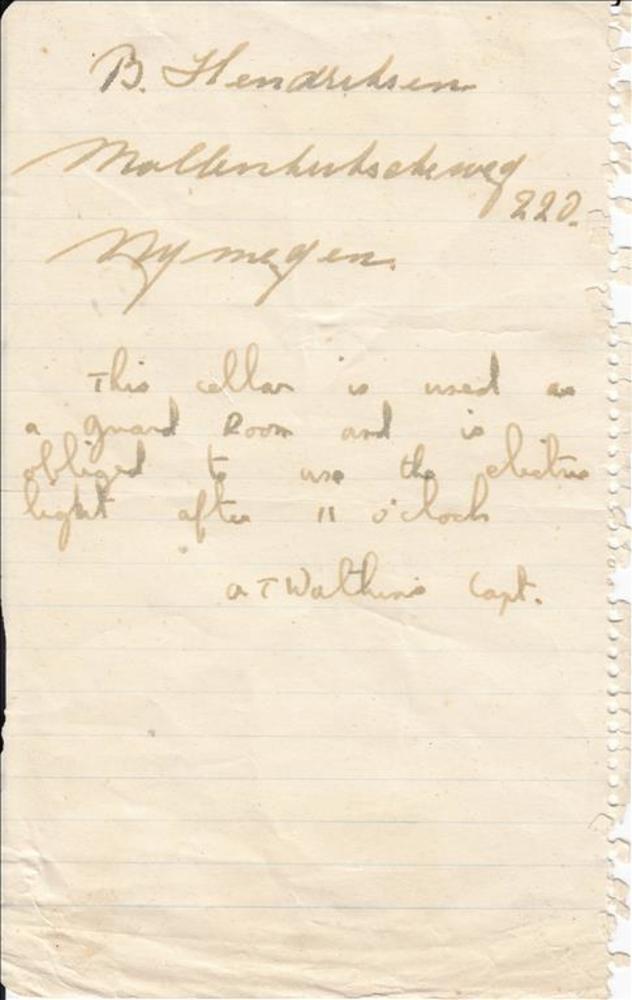 B. Hendriksen
Mollenhutscheweg
220.
Nymegen.
This cellar is used as
a guard Room and is
obliged to use the electric
light after 11 o'clock
A T Watkins Capt.